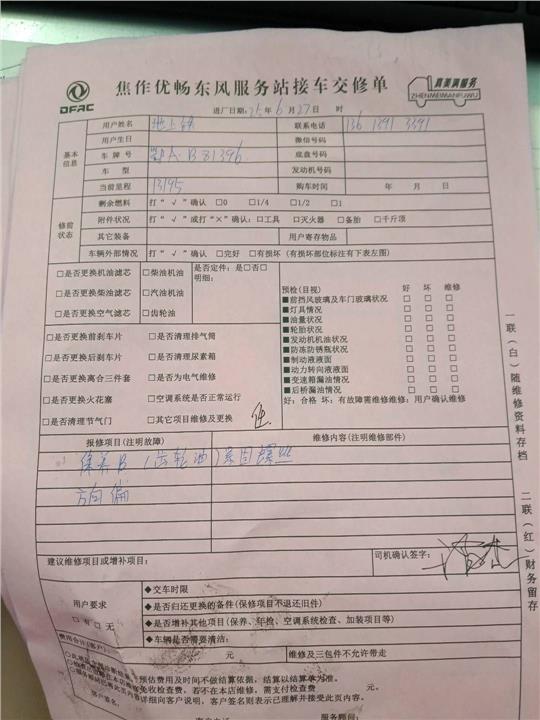 DFAC
焦作优畅东风服务站接车交修单
真美满服务
ZHENMEIMANFUWU
进厂日期:25年6月27日 时
基本信息
用户姓名 地上铁 联系电话 136 1391 3391
用户生日 微信号码
车牌号 B81396 底盘号码
车型 发动机号码
当前里程 13195 购车时间 年 月 日
修前状态
剩余燃料 打“√”确认 □0 □1/4 □1/2 □1
附件状况 打“√”或打“×”确认:□工具 □灭火器 □备胎 □千斤顶
其它装备 用户寄存物品
车辆外部情况 打“√”确认 □完好 □有损坏(有损坏部位标注有下表左图)
□是否更换机油滤芯 □柴油机油 是否定件:是□否□
明细:
□是否更换柴油滤芯 □汽油机油
□是否更换空气滤芯 □齿轮油
□是否更换前刹车片 □是否清理排气筒
□是否更换后刹车片 □是否清理尿素箱
□是否更换离合三件套 □是否为电气维修
□是否更换火花塞 □空调系统是否正常运行
□是否清理节气门 □其它项目维修及更换
预检(目视) 好 坏 维修
■前挡风玻璃及车门玻璃状况 □ □ □
■灯具情况 □ □ □
■油量状况 □ □ □
■轮胎状况 □ □ □
■发动机机油状况 □ □ □
■防冻防锈瓶状况 □ □ □
■制动液液面 □ □ □
■动力转向液液面 □ □ □
■变速箱漏油情况 □ □ □
■后桥漏油情况 □ □ □
好:合格 坏:有故障需维修维修:用户确认维修
报修项目(注明故障) 维修内容(注明维修部件)
保养B(齿轮油)紧固螺丝
方向偏
建议维修项目或增补项目: 司机确认签字:
用户要求
□有□无
◆交车时限
◆是否归还更换的备件(保修项目不退还旧件)
◆是否增补其他项目(保养、年检、空调系统检查、加装项目等)
◆车辆是否需要清洁:
费用合计(客户) 元 维修及三包件不允许带走
预估费用及时间不做结算依据,结算以结算单为准。
免收检查费,若不在本店维修,需支付检查费 元。
详细向客户说明,客户签名则表示已理解并接受此页内容。
客户签名: 服务顾问:
一联(白)随维修资料存档
二联(红)财务留存